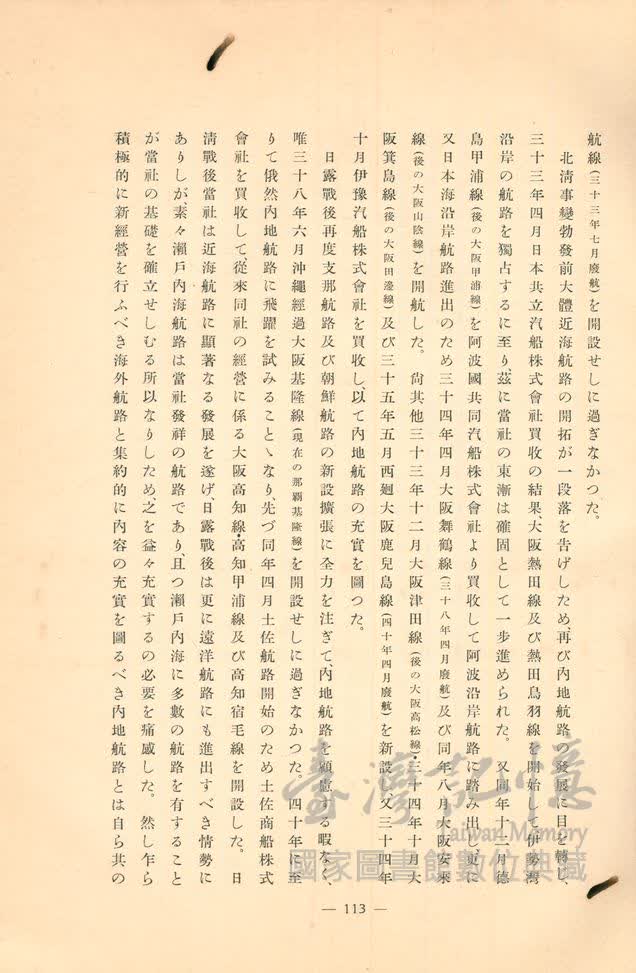 航線(三十三年七月廢航)を開設せしに過ぎなかつた。
北淸事變勃發前大體近海航路の開拓が一段落を告げしため、再び內地航路の發展に目を轉じ、
三十三年四月日本共立汽船株式會社買收の結果、大阪熱田線及び熱田鳥羽線を開始して伊勢灣
沿岸の航路を獨占するに至り、玆に當社の東漸は確固として一步進められた。又同年十二月德
島甲浦線(後の大阪甲浦線)を阿波國共同汽船株式會社より買收して阿波沿岸航路に踏み出し、更に
又日本海沿岸航路進出のため三十四年四月大阪舞鶴線(三十八年四月廢航)及び同年八月大阪安來
線(後の大阪山陰線)を開航した。尙其他三十三年十二月大阪津田線(後の大阪高松線)・三十四年十月大
阪箕島線(後の大阪田邊線)及び三十五年五月西廻大阪鹿兒島線(四十年四月廢航)を新設し、又三十四年
十月伊豫汽船株式會社を買收し、以て內地航路の充實を圖つた。
日露戰後再度支那航路及び朝鮮航路の新設擴張に全力を注ぎて、內地航路を顧慮する暇なく、
唯三十八年六月沖繩經過大阪基隆線(現在の那覇基隆線)を開設せしに過ぎなかつた。四十年に至
りて俄然內地航路に飛躍を試みることゝなり、先づ同年四月土佐航路開始のため土佐商船株式
會社を買收して從來同社の經營に係る大阪高知線・高知甲浦線及び高知宿毛線を開設した。日
淸戰後當社は近海航路に顯著なる發展を遂げ、日露戰後は更に遠洋航路にも進出すべき情勢に
ありしが、素々瀨戶內海航路は當社發祥の航路であり、且つ瀨戶內海に多數の航路を有すること
が當社の基礎を確立せしむる所以なりしため、之を益々充實するの必要を痛感した。然し乍ら
積極的に新經營を行ふべき海外航路と集約的に內容の充實を圖るべき內地航路とは自ら共の
— 113 —
臺灣記憶
Taiwan Memory
國家圖書館數位典藏